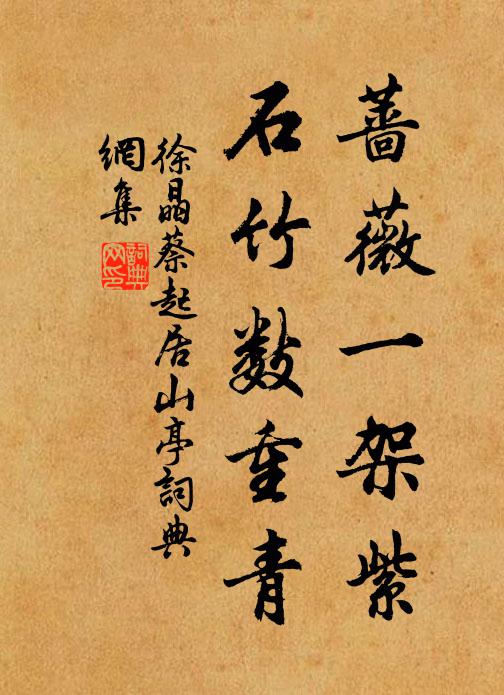 蔷薇一架紫
石竹数重青
徐晶蔡起居山亭詞典
網集
詞典网印